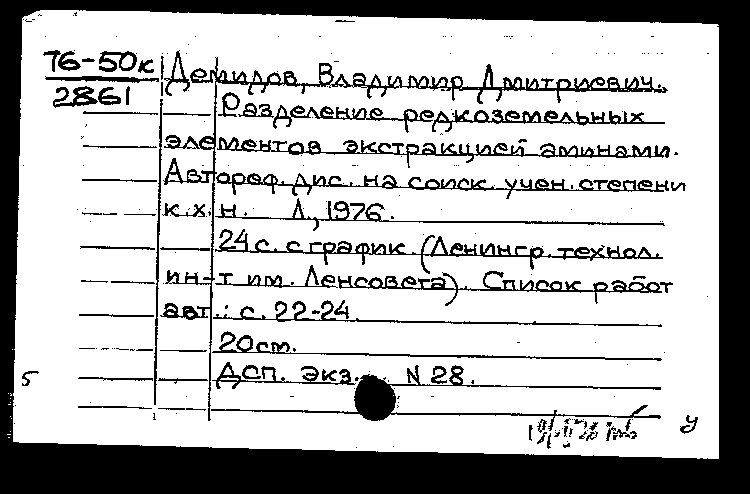 76-50к
2861
Демидов, Владимир Дмитриевич.
Разделение редкоземельных
элементов экстракцией аминами.
Автореф. дис. на соиск. учен. степени
к.х.н. Л., 1976.
24 с. с график. (Ленингр. технол.
ин-т им. Ленсовета). Список работ
авт.: с. 22-24.
20 см.
5 ДСП. экз. N 28.
у